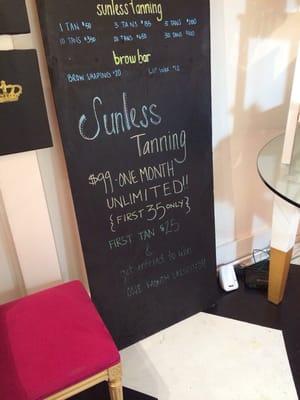 sunless tanning
1 TAN $50 3 TANS $135 5 TANS $200
10 TANS $350
brow bar
BROW SHAPING $20 LIP WAX
Sunless
Tanning
$99-ONE MONTH
UNLIMITED!!
{FIRST 35 ONLY}
FIRST TAN $25
&
get entered to win
ONE MONTH UNLIMITED!!